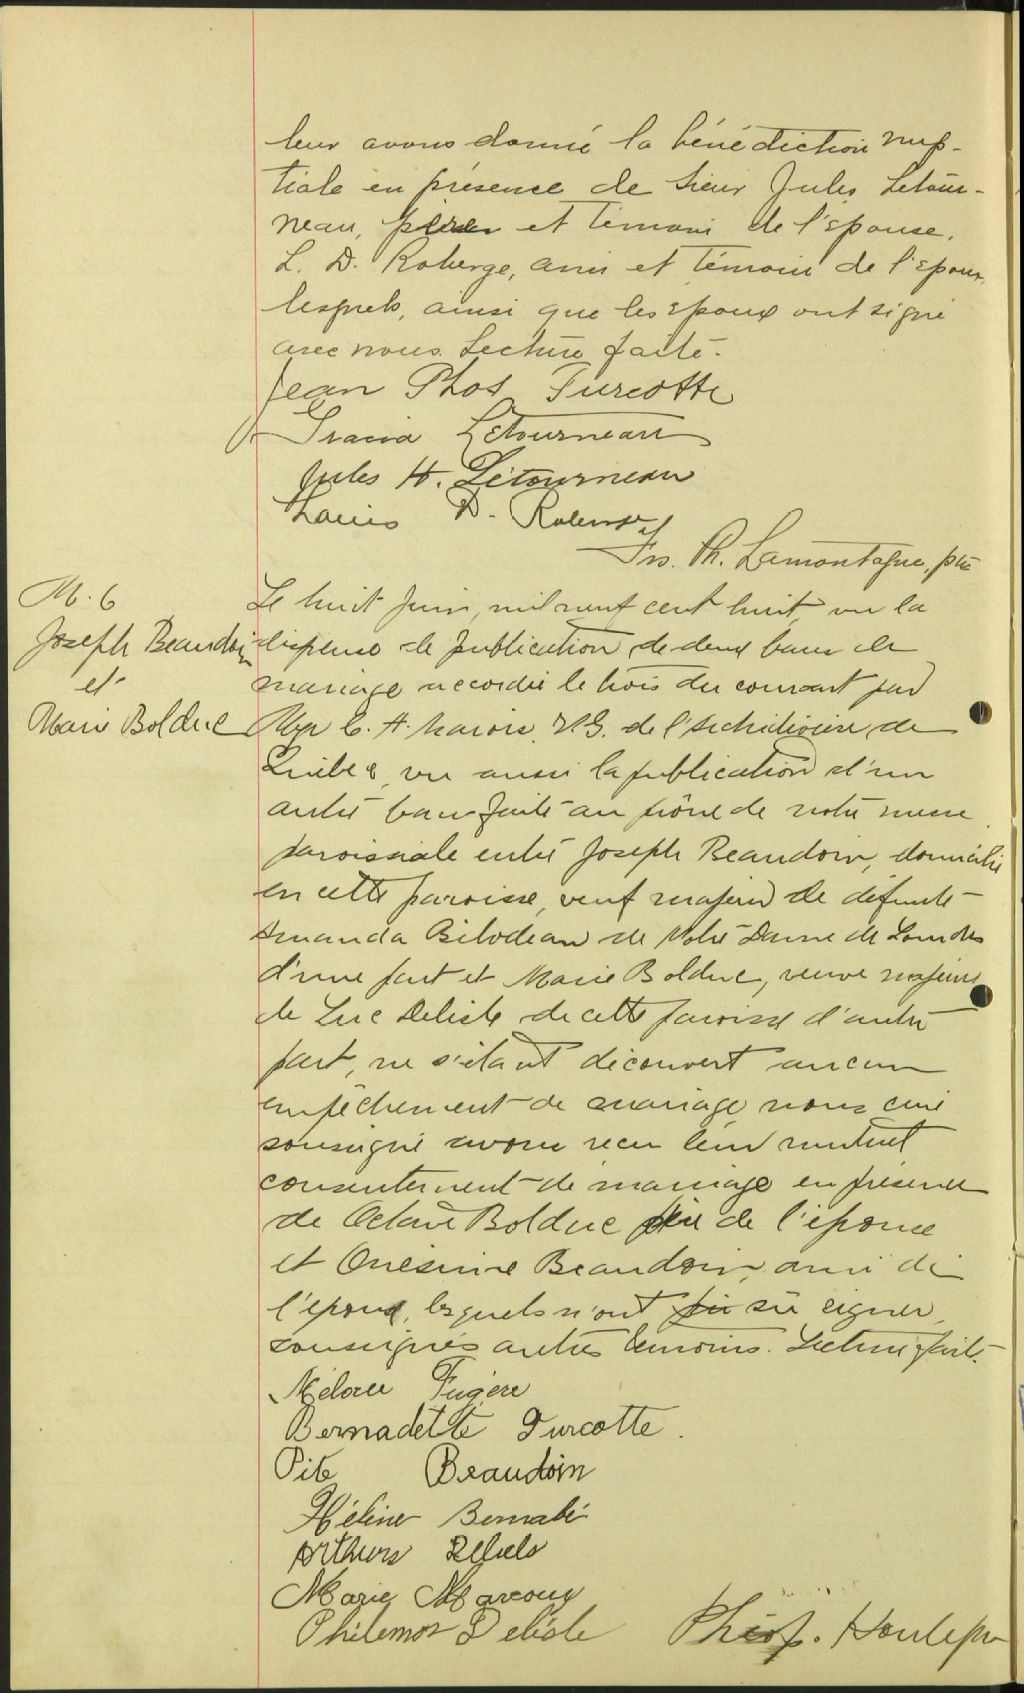 leur avons donné la bénédiction nup-
tiale en présence de Sieur Jules Letour-
neau, père et témoin de l'épouse,
L. D. Roberge, ami et témoin de l'époux,
lesquels, ainsi que les époux ont signé
avec nous. Lecture faite.
Jean Phos Turcotte
Gracia Létourneau
Jules H. Létourneau
Louis D. Roberge
Frs. Th. Lamontagne, ptre
M. 6
Joseph Beaudoin
et
Marie Bolduc
Le huit juin, mil neuf cent huit, vu la
dispense de publication de deux bans de
mariage accordée le trois du courant par
Mgr C. A. Marois, V.G. de l'Archidiocèse de
Québec, vu aussi la publication d'un
autre ban faite au prône de notre messe
paroissiale entre Joseph Beaudoin, domicilié
en cette paroisse, veuf majeur de défunte
Amanda Bilodeau de Notre Dame de Lourdes
d'une part et Marie Bolduc, veuve majeure
de Luc Delisle de cette paroisse d'autre
part, ne s'étant découvert aucun
empêchement de mariage nous curé
soussigné avons reçu leur mutuel
consentement de mariage en présence
de Octave Bolduc père de l'épouse
et Onésime Beaudoin, ami de
l'époux, lesquels n'ont su signer,
soussignés autres témoins. Lecture faite.
Fugère
Bernadette Turcotte.
Pite Beaudoin
Hélène Bernabé
Arthurs
Marie Marcoux
Philemon Delisle
Théop. Houle ptre